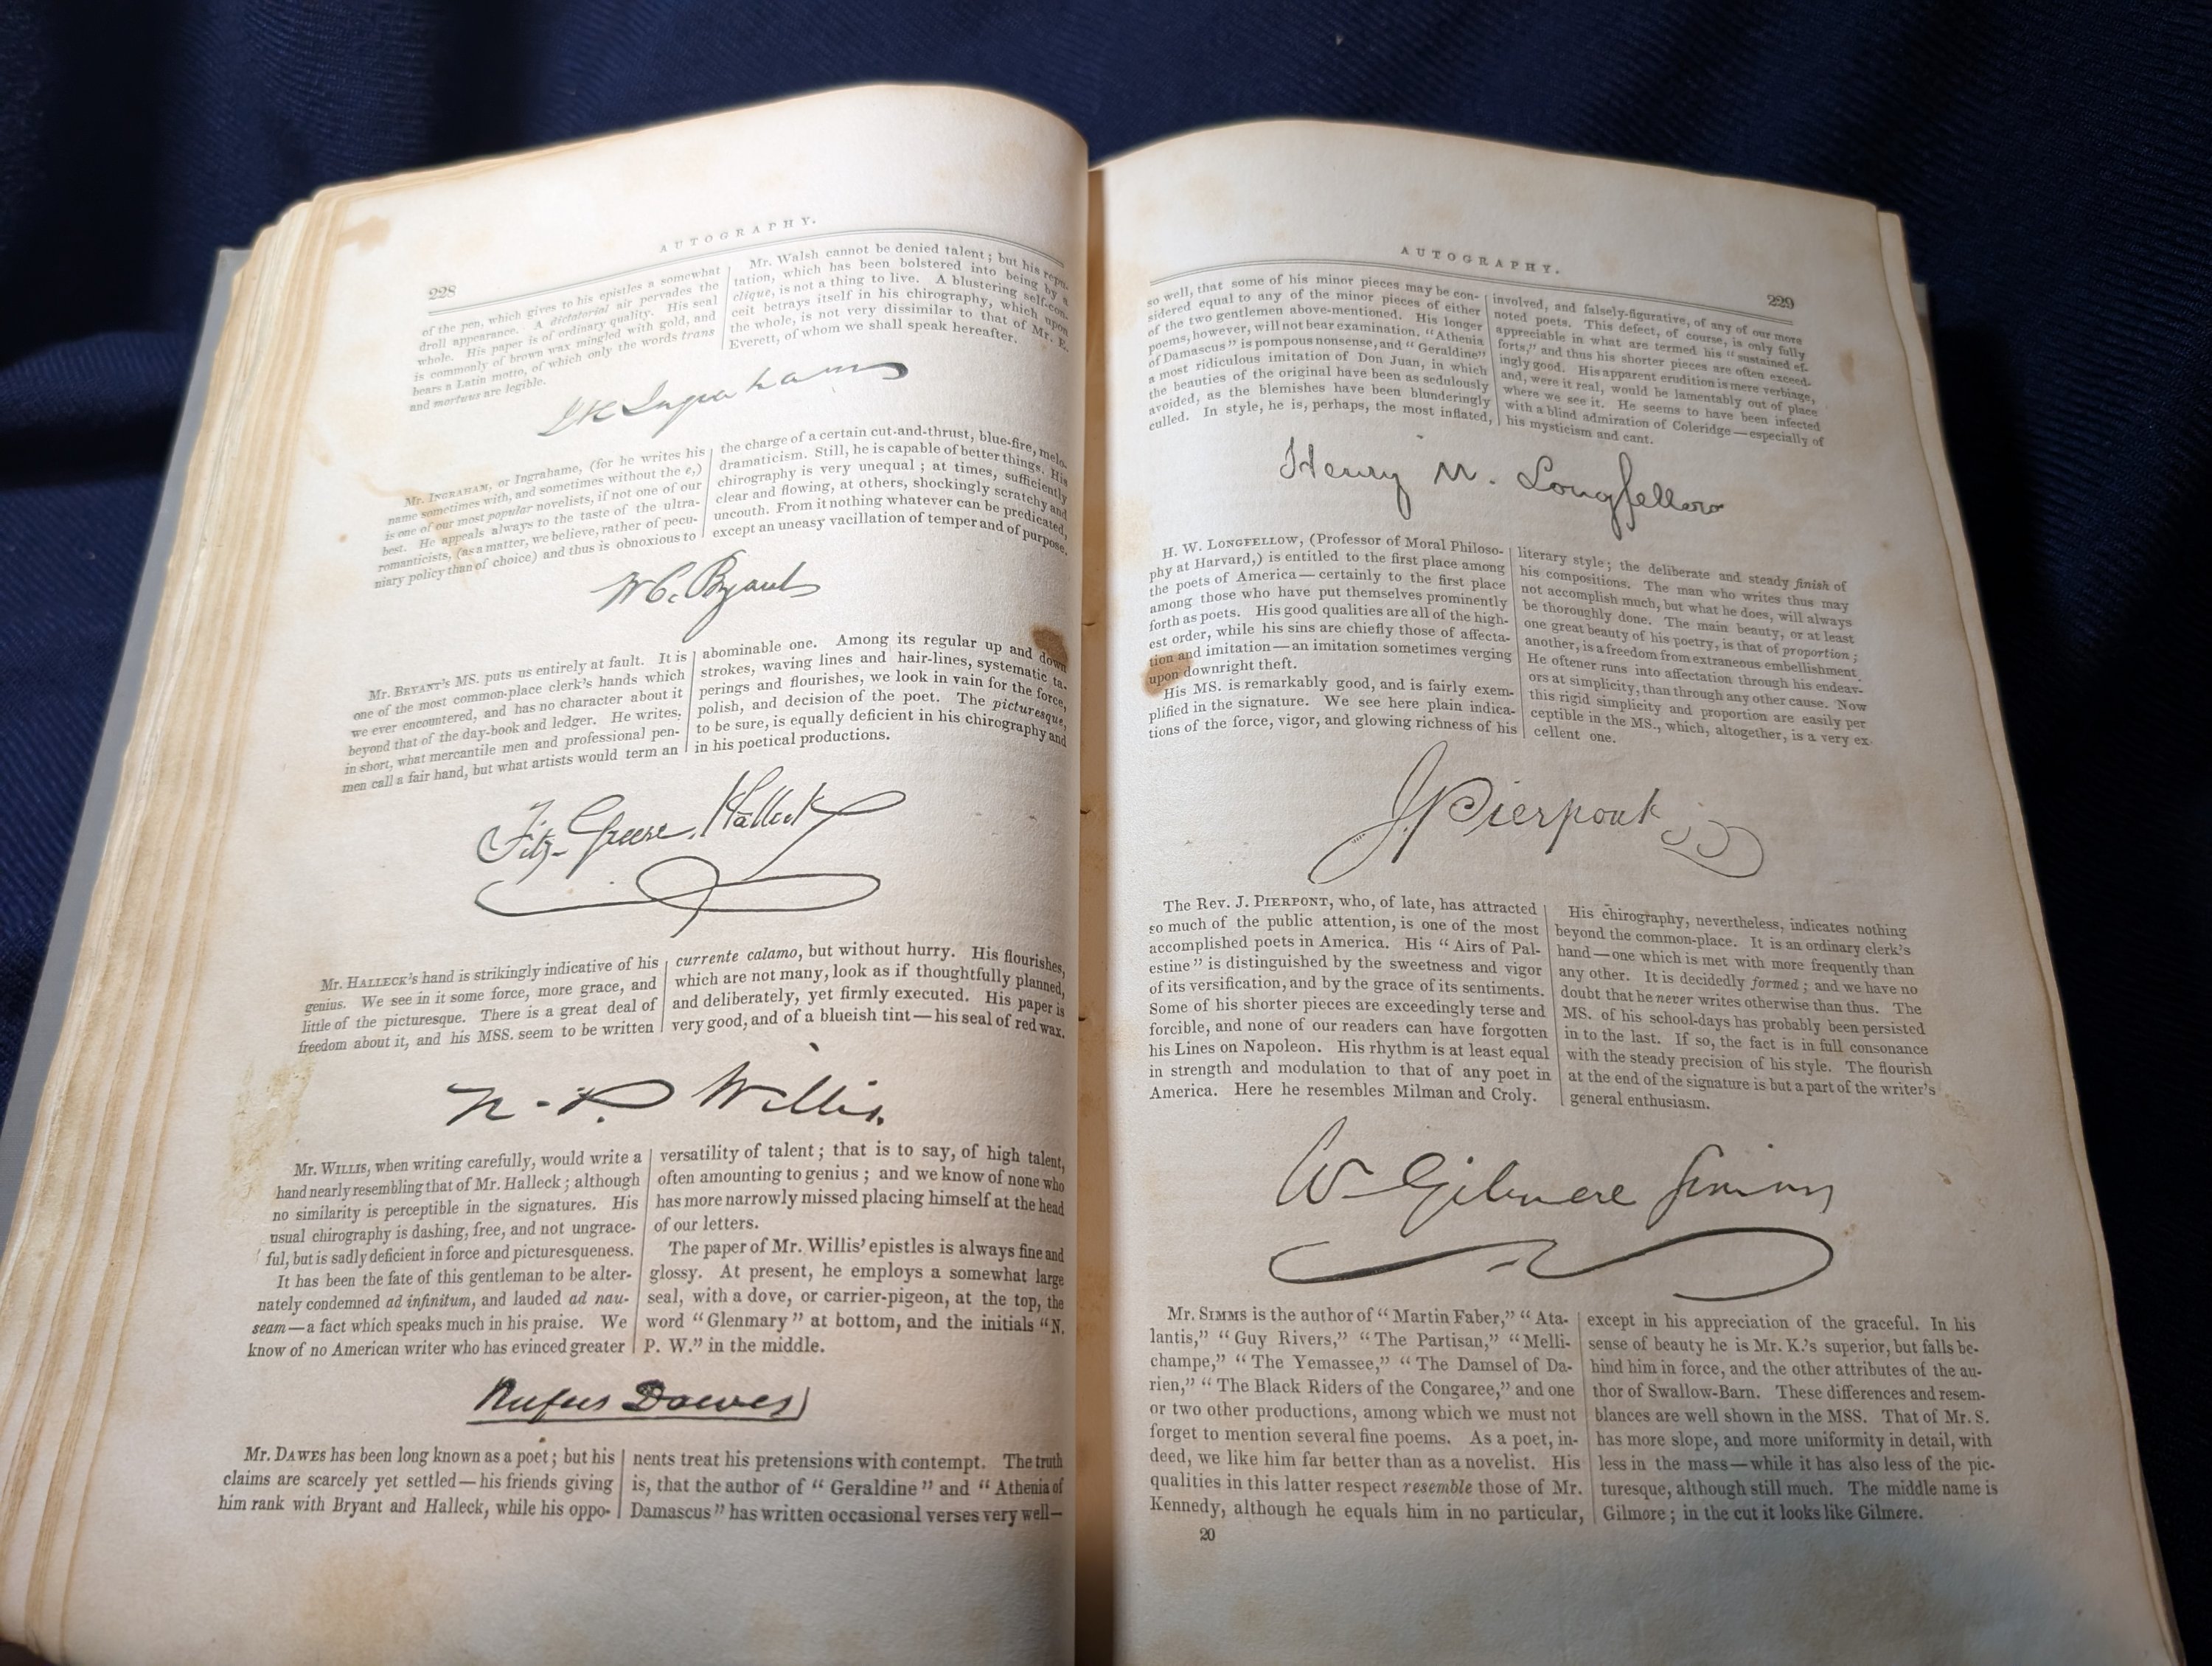 228
AUTOGRAPHY.
of the pen, which gives to his epistles a somewhat
droll appearance. A dictatorial air pervades the
whole. His paper is of ordinary quality. His seal
is commonly of brown wax mingled with gold, and
bears a Latin motto, of which only the words trans
and mortuus are legible.
Mr. Walsh cannot be denied talent; but his repu-
tation, which has been bolstered into being by a
clique, is not a thing to live. A blustering self-con-
ceit betrays itself in his chirography, which upon
the whole, is not very dissimilar to that of Mr. E.
Everett, of whom we shall speak hereafter.
J H Ingraham
Mr. INGRAHAM, or Ingrahame, (for he writes his
name sometimes with, and sometimes without the e,)
is one of our most popular novelists, if not one of our
best. He appeals always to the taste of the ultra-
romanticists, (as a matter, we believe, rather of pecu-
niary policy than of choice) and thus is obnoxious to
the charge of a certain cut-and-thrust, blue-fire, melo-
dramaticism. Still, he is capable of better things. His
chirography is very unequal; at times, sufficiently
clear and flowing, at others, shockingly scratchy and
uncouth. From it nothing whatever can be predicated,
except an uneasy vacillation of temper and of purpose.
W. C. Bryant
Mr. BRYANT'S MS. puts us entirely at fault. It is
one of the most common-place clerk's hands which
we ever encountered, and has no character about it
beyond that of the day-book and ledger. He writes,
in short, what mercantile men and professional pen-
men call a fair hand, but what artists would term an
abominable one. Among its regular up and down
strokes, waving lines and hair-lines, systematic ta-
perings and flourishes, we look in vain for the force,
polish, and decision of the poet. The picturesque,
to be sure, is equally deficient in his chirography and
in his poetical productions.
Fitz-Greene Halleck
Mr. HALLECK'S hand is strikingly indicative of his
genius. We see in it some force, more grace, and
little of the picturesque. There is a great deal of
freedom about it, and his MSS. seem to be written
currente calamo, but without hurry. His flourishes,
which are not many, look as if thoughtfully planned,
and deliberately, yet firmly executed. His paper is
very good, and of a blueish tint—his seal of red wax.
N. P. Willis.
Mr. WILLIS, when writing carefully, would write a
hand nearly resembling that of Mr. Halleck; although
no similarity is perceptible in the signatures. His
usual chirography is dashing, free, and not ungrace-
ful, but is sadly deficient in force and picturesqueness.
It has been the fate of this gentleman to be alter-
nately condemned ad infinitum, and lauded ad nau-
seam—a fact which speaks much in his praise. We
know of no American writer who has evinced greater
versatility of talent; that is to say, of high talent,
often amounting to genius; and we know of none who
has more narrowly missed placing himself at the head
of our letters.
The paper of Mr. Willis' epistles is always fine and
glossy. At present, he employs a somewhat large
seal, with a dove, or carrier-pigeon, at the top, the
word "Glenmary" at bottom, and the initials "N.
P. W." in the middle.
Rufus Dawes
Mr. DAWES has been long known as a poet; but his
claims are scarcely yet settled—his friends giving
him rank with Bryant and Halleck, while his oppo-
nents treat his pretensions with contempt. The truth
is, that the author of "Geraldine" and "Athenia of
Damascus" has written occasional verses very well—
AUTOGRAPHY.
229
so well, that some of his minor pieces may be con-
sidered equal to any of the minor pieces of either
of the two gentlemen above-mentioned. His longer
poems, however, will not bear examination. "Athenia
of Damascus" is pompous nonsense, and "Geraldine"
a most ridiculous imitation of Don Juan, in which
the beauties of the original have been as sedulously
avoided, as the blemishes have been blunderingly
culled. In style, he is, perhaps, the most inflated,
involved, and falsely-figurative, of any of our more
noted poets. This defect, of course, is only fully
appreciable in what are termed his "sustained ef-
forts," and thus his shorter pieces are often exceed-
ingly good. His apparent erudition is mere verbiage,
and, were it real, would be lamentably out of place
where we see it. He seems to have been infected
with a blind admiration of Coleridge—especially of
his mysticism and cant.
Henry W. Longfellow
H. W. LONGFELLOW, (Professor of Moral Philoso-
phy at Harvard,) is entitled to the first place among
the poets of America—certainly to the first place
among those who have put themselves prominently
forth as poets. His good qualities are all of the high-
est order, while his sins are chiefly those of affecta-
tion and imitation—an imitation sometimes verging
upon downright theft.
His MS. is remarkably good, and is fairly exem-
plified in the signature. We see here plain indica-
tions of the force, vigor, and glowing richness of his
literary style; the deliberate and steady finish of
his compositions. The man who writes thus may
not accomplish much, but what he does, will always
be thoroughly done. The main beauty, or at least
one great beauty of his poetry, is that of proportion;
another, is a freedom from extraneous embellishment.
He oftener runs into affectation through his endeav-
ors at simplicity, than through any other cause. Now
this rigid simplicity and proportion are easily per
ceptible in the MS., which, altogether, is a very ex
cellent one.
J. Pierpont
The Rev. J. PIERPONT, who, of late, has attracted
so much of the public attention, is one of the most
accomplished poets in America. His "Airs of Pal-
estine" is distinguished by the sweetness and vigor
of its versification, and by the grace of its sentiments.
Some of his shorter pieces are exceedingly terse and
forcible, and none of our readers can have forgotten
his Lines on Napoleon. His rhythm is at least equal
in strength and modulation to that of any poet in
America. Here he resembles Milman and Croly.
His chirography, nevertheless, indicates nothing
beyond the common-place. It is an ordinary clerk's
hand—one which is met with more frequently than
any other. It is decidedly formed; and we have no
doubt that he never writes otherwise than thus. The
MS. of his school-days has probably been persisted
in to the last. If so, the fact is in full consonance
with the steady precision of his style. The flourish
at the end of the signature is but a part of the writer's
general enthusiasm.
W Gilmore Simms
Mr. SIMMS is the author of "Martin Faber," "Ata-
lantis," "Guy Rivers," "The Partisan," "Melli-
champe," "The Yemassee," "The Damsel of Da-
rien," "The Black Riders of the Congaree," and one
or two other productions, among which we must not
forget to mention several fine poems. As a poet, in-
deed, we like him far better than as a novelist. His
qualities in this latter respect resemble those of Mr.
Kennedy, although he equals him in no particular,
except in his appreciation of the graceful. In his
sense of beauty he is Mr. K.'s superior, but falls be-
hind him in force, and the other attributes of the au-
thor of Swallow-Barn. These differences and resem-
blances are well shown in the MSS. That of Mr. S.
has more slope, and more uniformity in detail, with
less in the mass—while it has also less of the pic-
turesque, although still much. The middle name is
Gilmore; in the cut it looks like Gilmere.
20